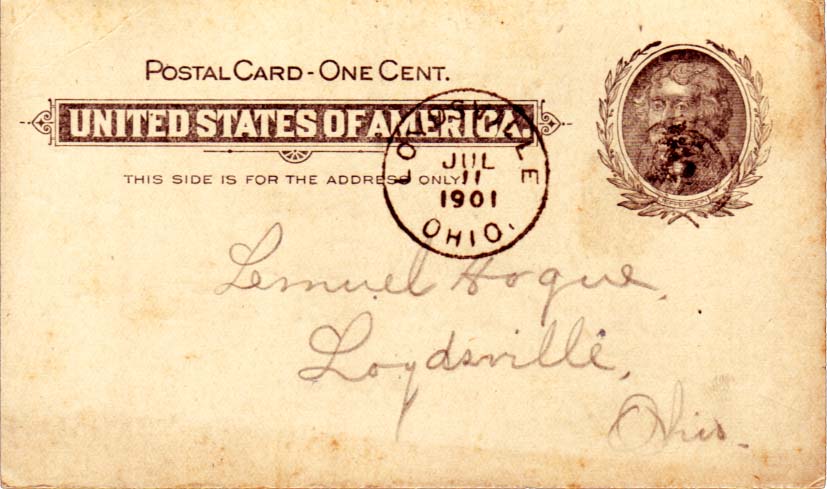 POSTAL CARD - ONE CENT.
UNITED STATES OF AMERICA.
THIS SIDE IS FOR THE ADDRESS ONLY.
LOYDSVILLE
JUL
11
1901
OHIO.
JEFFERSON
Lemuel Hogue,
Loydsville,
Ohio.